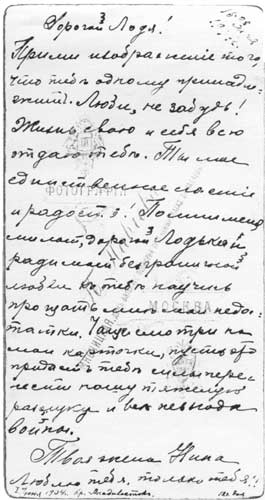 Дорогой Лодя!
Прими изображение того,
что тебѣ одному принадле-
житъ. Люби, не забудь!
Жизнь свою и себя всю
отдаю тебѣ. Ты мое
единственное счастіе
и радость! Помни меня
милый, дорогой Лодька и
ради моей безграничной
любви къ тебѣ научись
прощать мнѣ мои недо-
татки. Чаще смотри на
мои карточки, пусть это
придастъ тебѣ силы пере-
нести нашу тяжелую
разлуку и всѣ невзгоды
войны.
Твоя жена Нина
Люблю тебя, только тебя!!
1904г. гр. Владивостокъ.
ФОТОГРАФІЯ
МОСКВА